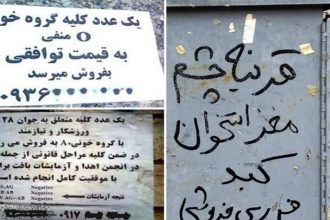 یک عدد کلیه گروه خو
O منفی
به قیمت توافقی
بفروش میرسد
۰۹۳۶
یک عدد کلیه متعلق به جوان ۲۸
ورزشکار و نیازمند
با گروه خونی A به فروش می
در ضمن کلیه مراحل قانونی از جمله
در انجمن اهدا و آزمایشات بافت برا
با موفقیت کامل انجام شده است
نتیجه آزمایشات
Negative
Negative
Negative
۰۹۱۷
قرنیه چشم
مغز استخوان
کبد